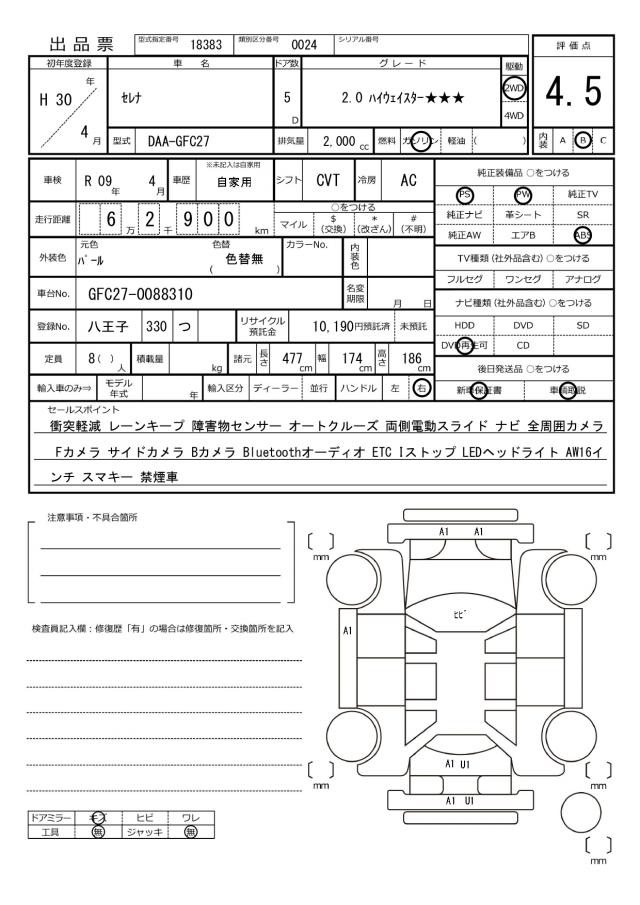 出品票 型式指定番号 18383 類別区分番号 0024 シリアル番号
初年度登録 車名 ドア数 グレード 駆動 評価点
H 30 年 セレナ 5 D 2.0 ハイウェイスター★★★ 2WD 4WD 4.5
4 月 型式 DAA-GFC27 排気量 2,000 cc 燃料 ガソリン 軽油 ( ) 内装 A B C
車検 R 09 年 4 月 車歴 ※未記入は自家用 自家用 シフト CVT 冷房 AC 純正装備品 ○をつける
PS PW 純正TV
走行距離 6 万 2 千 9 0 0 km ○をつける 純正ナビ 革シート SR
マイル $ (交換) * (改ざん) # (不明) 純正AW エアB ABS
外装色 元色 パール 色替 ( 色替無 ) カラーNo. 内装色 TV種類 (社外品含む) ○をつける
フルセグ ワンセグ アナログ
車台No. GFC27-0088310 名変期限 月 日 ナビ種類 (社外品含む) ○をつける
登録No. 八王子 330 つ リサイクル預託金 10,190円預託済 未預託 HDD DVD SD
DVD再生可 CD
定員 8 ( ) 人 積載量 kg 諸元 長さ 477 cm 幅 174 cm 高さ 186 cm 後日発送品 ○をつける
輸入車のみ⇒ モデル年式 年 輸入区分 ディーラー 並行 ハンドル 左 右 新車保証書 車輌取説
セールスポイント
衝突軽減 レーンキープ 障害物センサー オートクルーズ 両側電動スライド ナビ 全周囲カメラ
Fカメラ サイドカメラ Bカメラ Bluetoothオーディオ ETC Iストップ LEDヘッドライト AW16イ
ンチ スマキー 禁煙車
注意事項・不具合箇所
A1 A1
mm mm
ヒビ
検査員記入欄:修復歴「有」の場合は修復箇所・交換箇所を記入
A1
A1 U1
mm mm
A1 U1
ドアミラー キズ ヒビ ワレ
工具 無 ジャッキ 無
mm